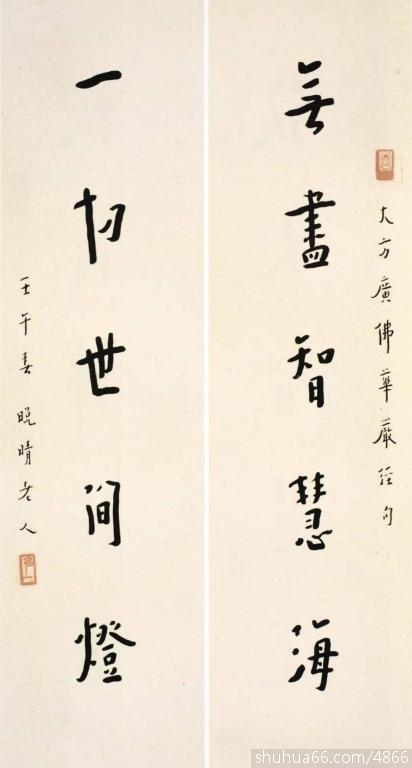 大方廣佛華嚴經句
無盡智慧海
一切世間燈
壬午春晚晴老人
shuhua66.com/4866